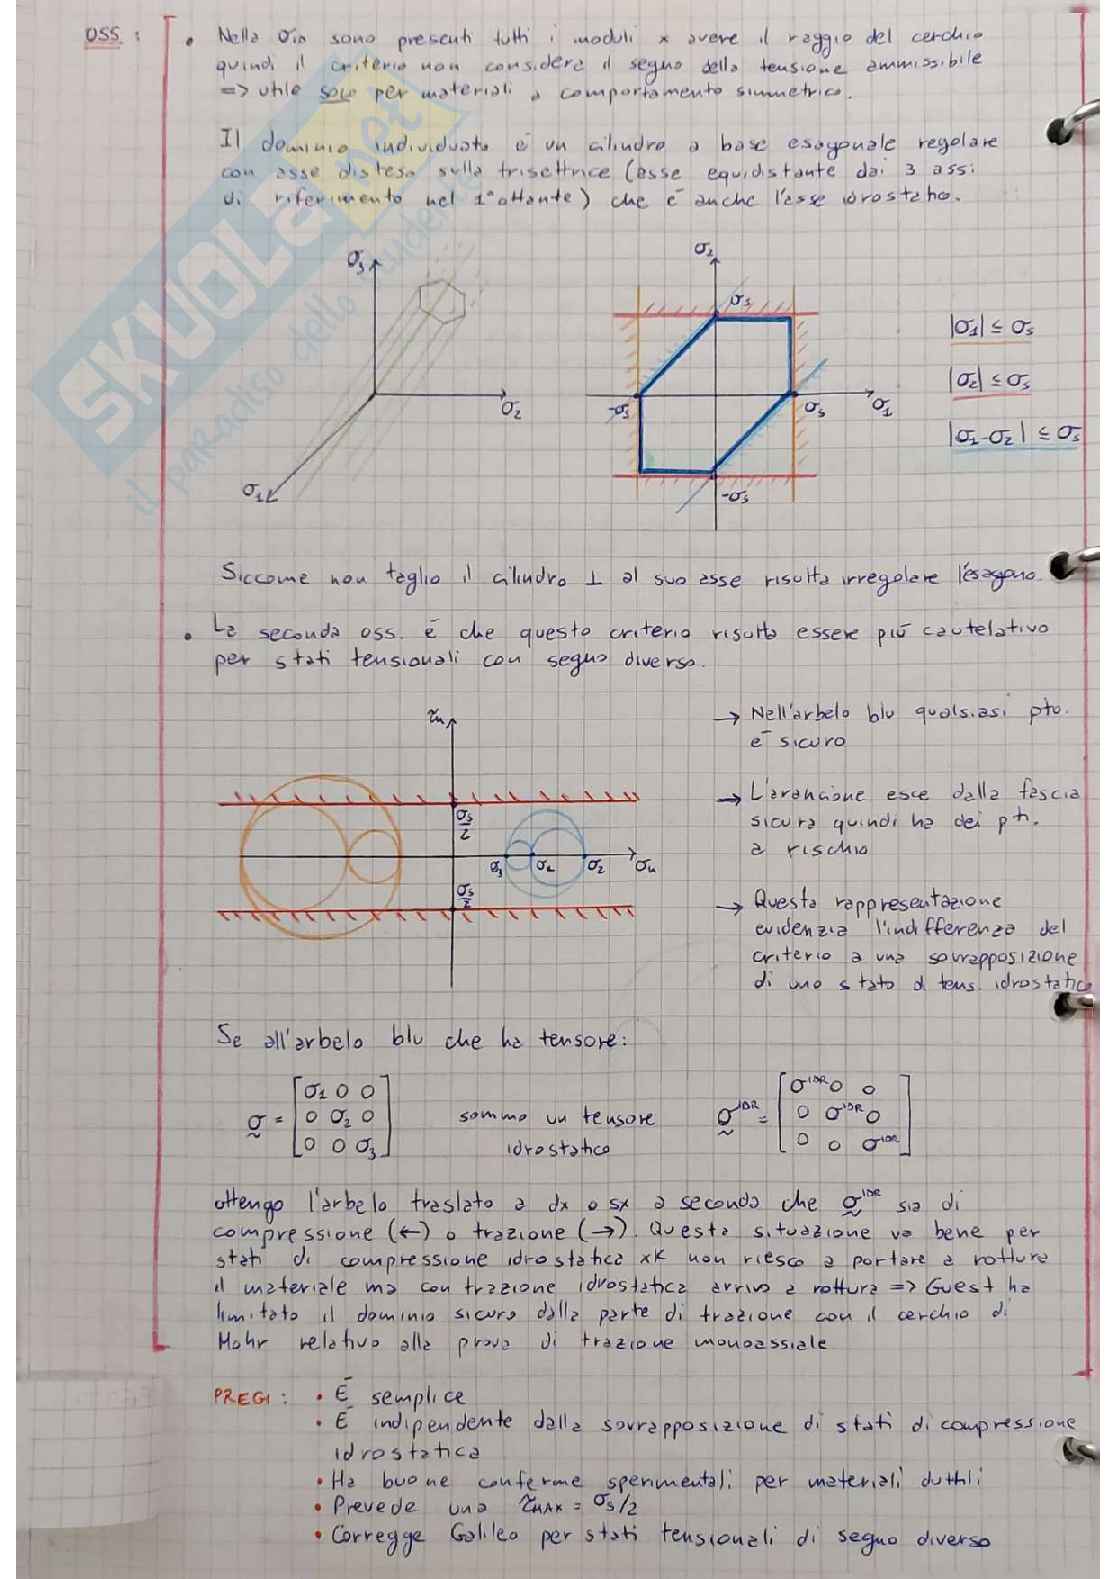 OSS. :
• Nella σid sono presenti tutti i moduli x avere il raggio del cerchio
quindi il criterio non considera il segno della tensione ammissibile
=> utile solo per materiali a comportamento simmetrico.
Il dominio individuato è un cilindro a base esagonale regolare
con asse disteso sulla trisettrice (asse equidistante dai 3 assi
di riferimento nel 1° ottante) che è anche l'asse idrostatico.
σ3
σ2
σ1
σ2
σs
-σs
σs
σ1
-σs
|σ1| ≤ σs
|σ2| ≤ σs
|σ1-σ2| ≤ σs
Siccome non taglio il cilindro ⊥ al suo asse risulta irregolare l'esagono.
• La seconda oss. è che questo criterio risulta essere più cautelativo
per stati tensionali con segno diverso.
τn
σs/2
σ3 σ1 σ2 σn
σs/2
→ Nell'arbelo blu qualsiasi pto.
è sicuro
→ L'arancione esce dalla fascia
sicura quindi ha dei pti.
a rischio
→ Questa rappresentazione
evidenzia l'indifferenza del
criterio a una sovrapposizione
di uno stato di tens. idrostatico
Se all'arbelo blu che ha tensore:
σ = [σ1 0 0
0 σ2 0
0 0 σ3]
sommo un tensore
idrostatico
σ^IDR = [σ^IDR 0 0
0 σ^IDR 0
0 0 σ^IDR]
ottengo l'arbelo traslato a dx o sx a seconda che σ^IDR sia di
compressione (←) o trazione (→). Questa situazione va bene per
stati di compressione idrostatica xk non riesco a portare a rottura
il materiale ma con trazione idrostatica arrivo a rottura => Guest ha
limitato il dominio sicuro dalla parte di trazione con il cerchio di
Mohr relativo alla prova di trazione monoassiale
PREGI : • È semplice
• È indipendente dalla sovrapposizione di stati di compressione
idrostatica
• Ha buone conferme sperimentali per materiali duttili
• Prevede una τMAX = σs/2
• Corregge Galileo per stati tensionali di segno diverso
SKUOLA.net
il paradiso dello studente